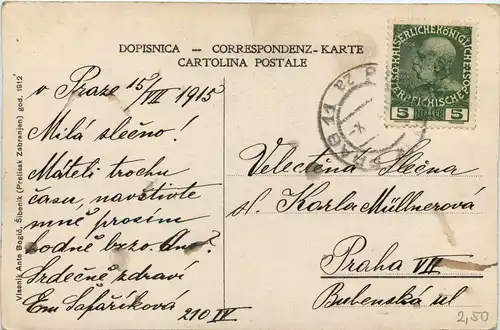 DOPISNICA — CORRESPONDENZ-KARTE
CARTOLINA POSTALE
v Praze 15/VII 1915
Milá slečno!
Máteli trochu
času, navštivte
mně prosím
hodně brzo. Ano?
Srdečně zdraví
Em Šafaříková
210 IV
Velectěna Slečna
sl. Karla Müllnerová
Praha VII
Bubenská ul
2,50
Vlasnik Ante Bogić, Šibenik (Pretisak Zabranjen) god. 1912
KAISERLICHE KÖNIGLICHE
ÖSTERREICHISCHE
5 5
PRAG 11